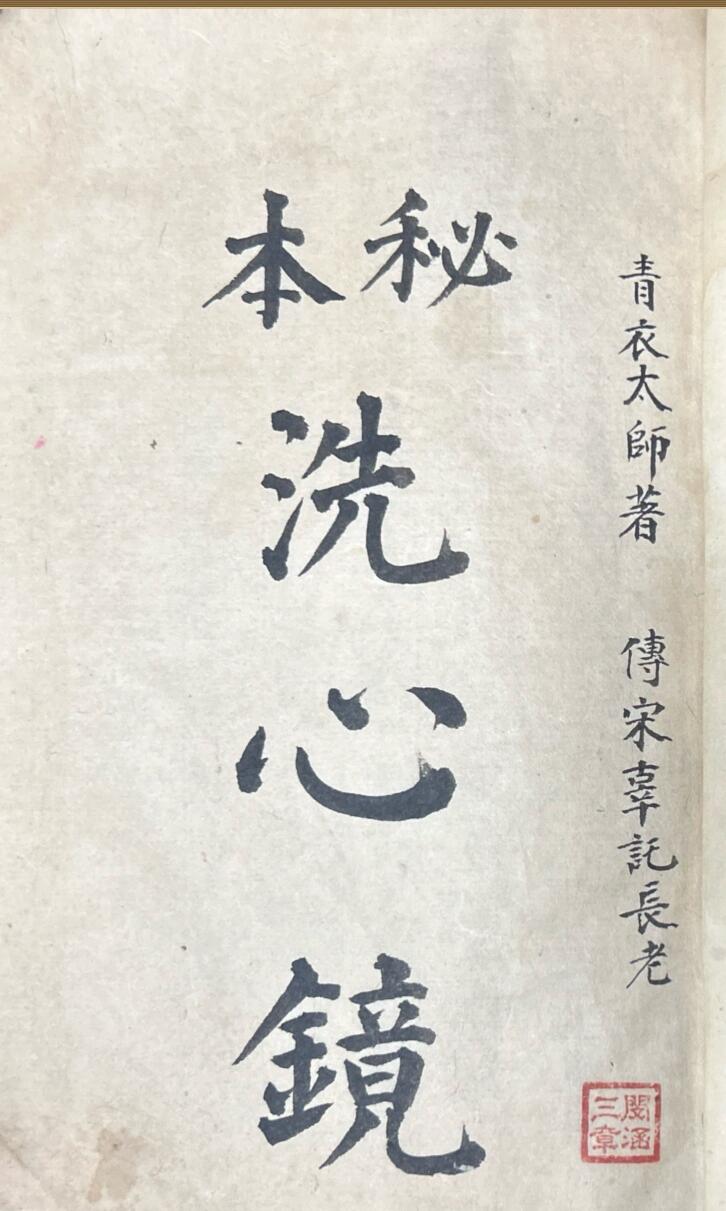 青衣太師著 傳宋辜託長老
秘本
洗心鏡
閩涵
三章